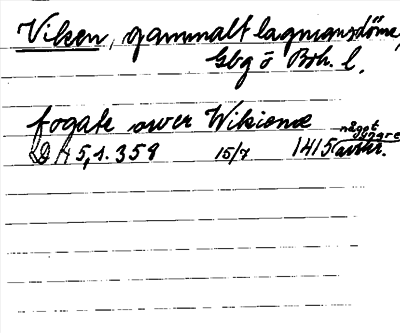 Viken, gammalt lagmansdöme,
Gbg o Boh. l.
fogate over Wikiome
något
yngre
5, s. 359 15/7 1415 avskr.